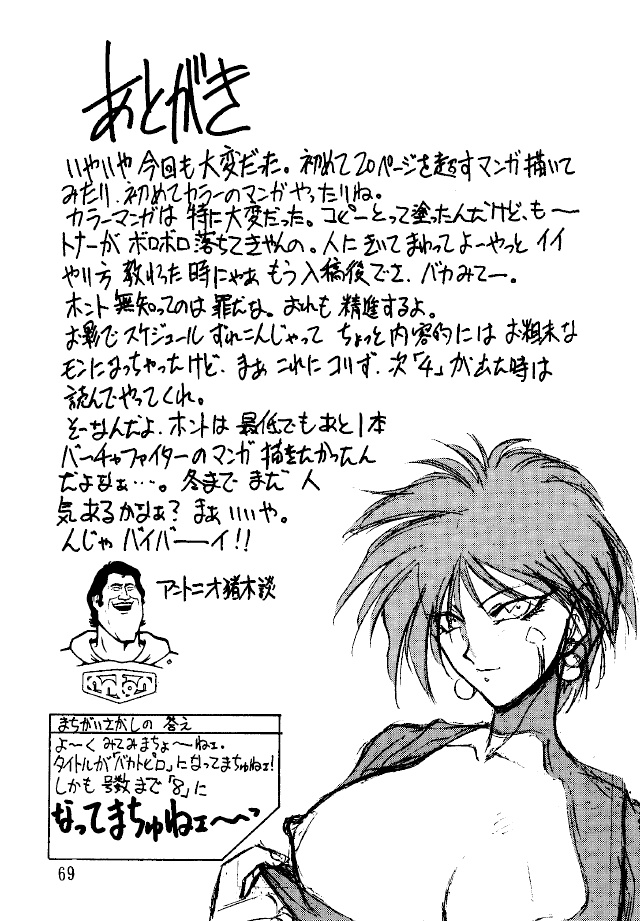 あとがき
いやいや今回も大変だった。初めて20ページを越すマンガ描いて
みたり、初めてカラーのマンガやったりね。
カラーマンガは特に大変だった。コピーとって塗ったんだけど、も〜
トナーがボロボロ落ちてきやんの。人にきいてまわってよ〜やっとイイ
やり方教わった時にゃあもう入稿後でさ、バカみてー。
ホント無知ってのは罪だな。おれも精進するよ。
お影でスケジュールずれこんじゃってちょっと内容的にはお粗末な
モンになっちゃったけど、まぁこれにコリず、次「4」が出た時は
読んでやってくれ。
そーなんだよ、ホントは最低でもあと1本
バーチャファイターのマンガ描きたかったん
だよなぁ…。冬までまだ人
気あるかなぁ?まぁいいや。
んじゃバイバーーイ!!
アントニオ猪木談
まちがいさがしの答え
よ〜くみてみまちょ〜ねェ。
タイトルが「バカトピロ」になってまちゅねェ!
しかも号数まで「8」に
なってまちゅねェ〜〜っ
69